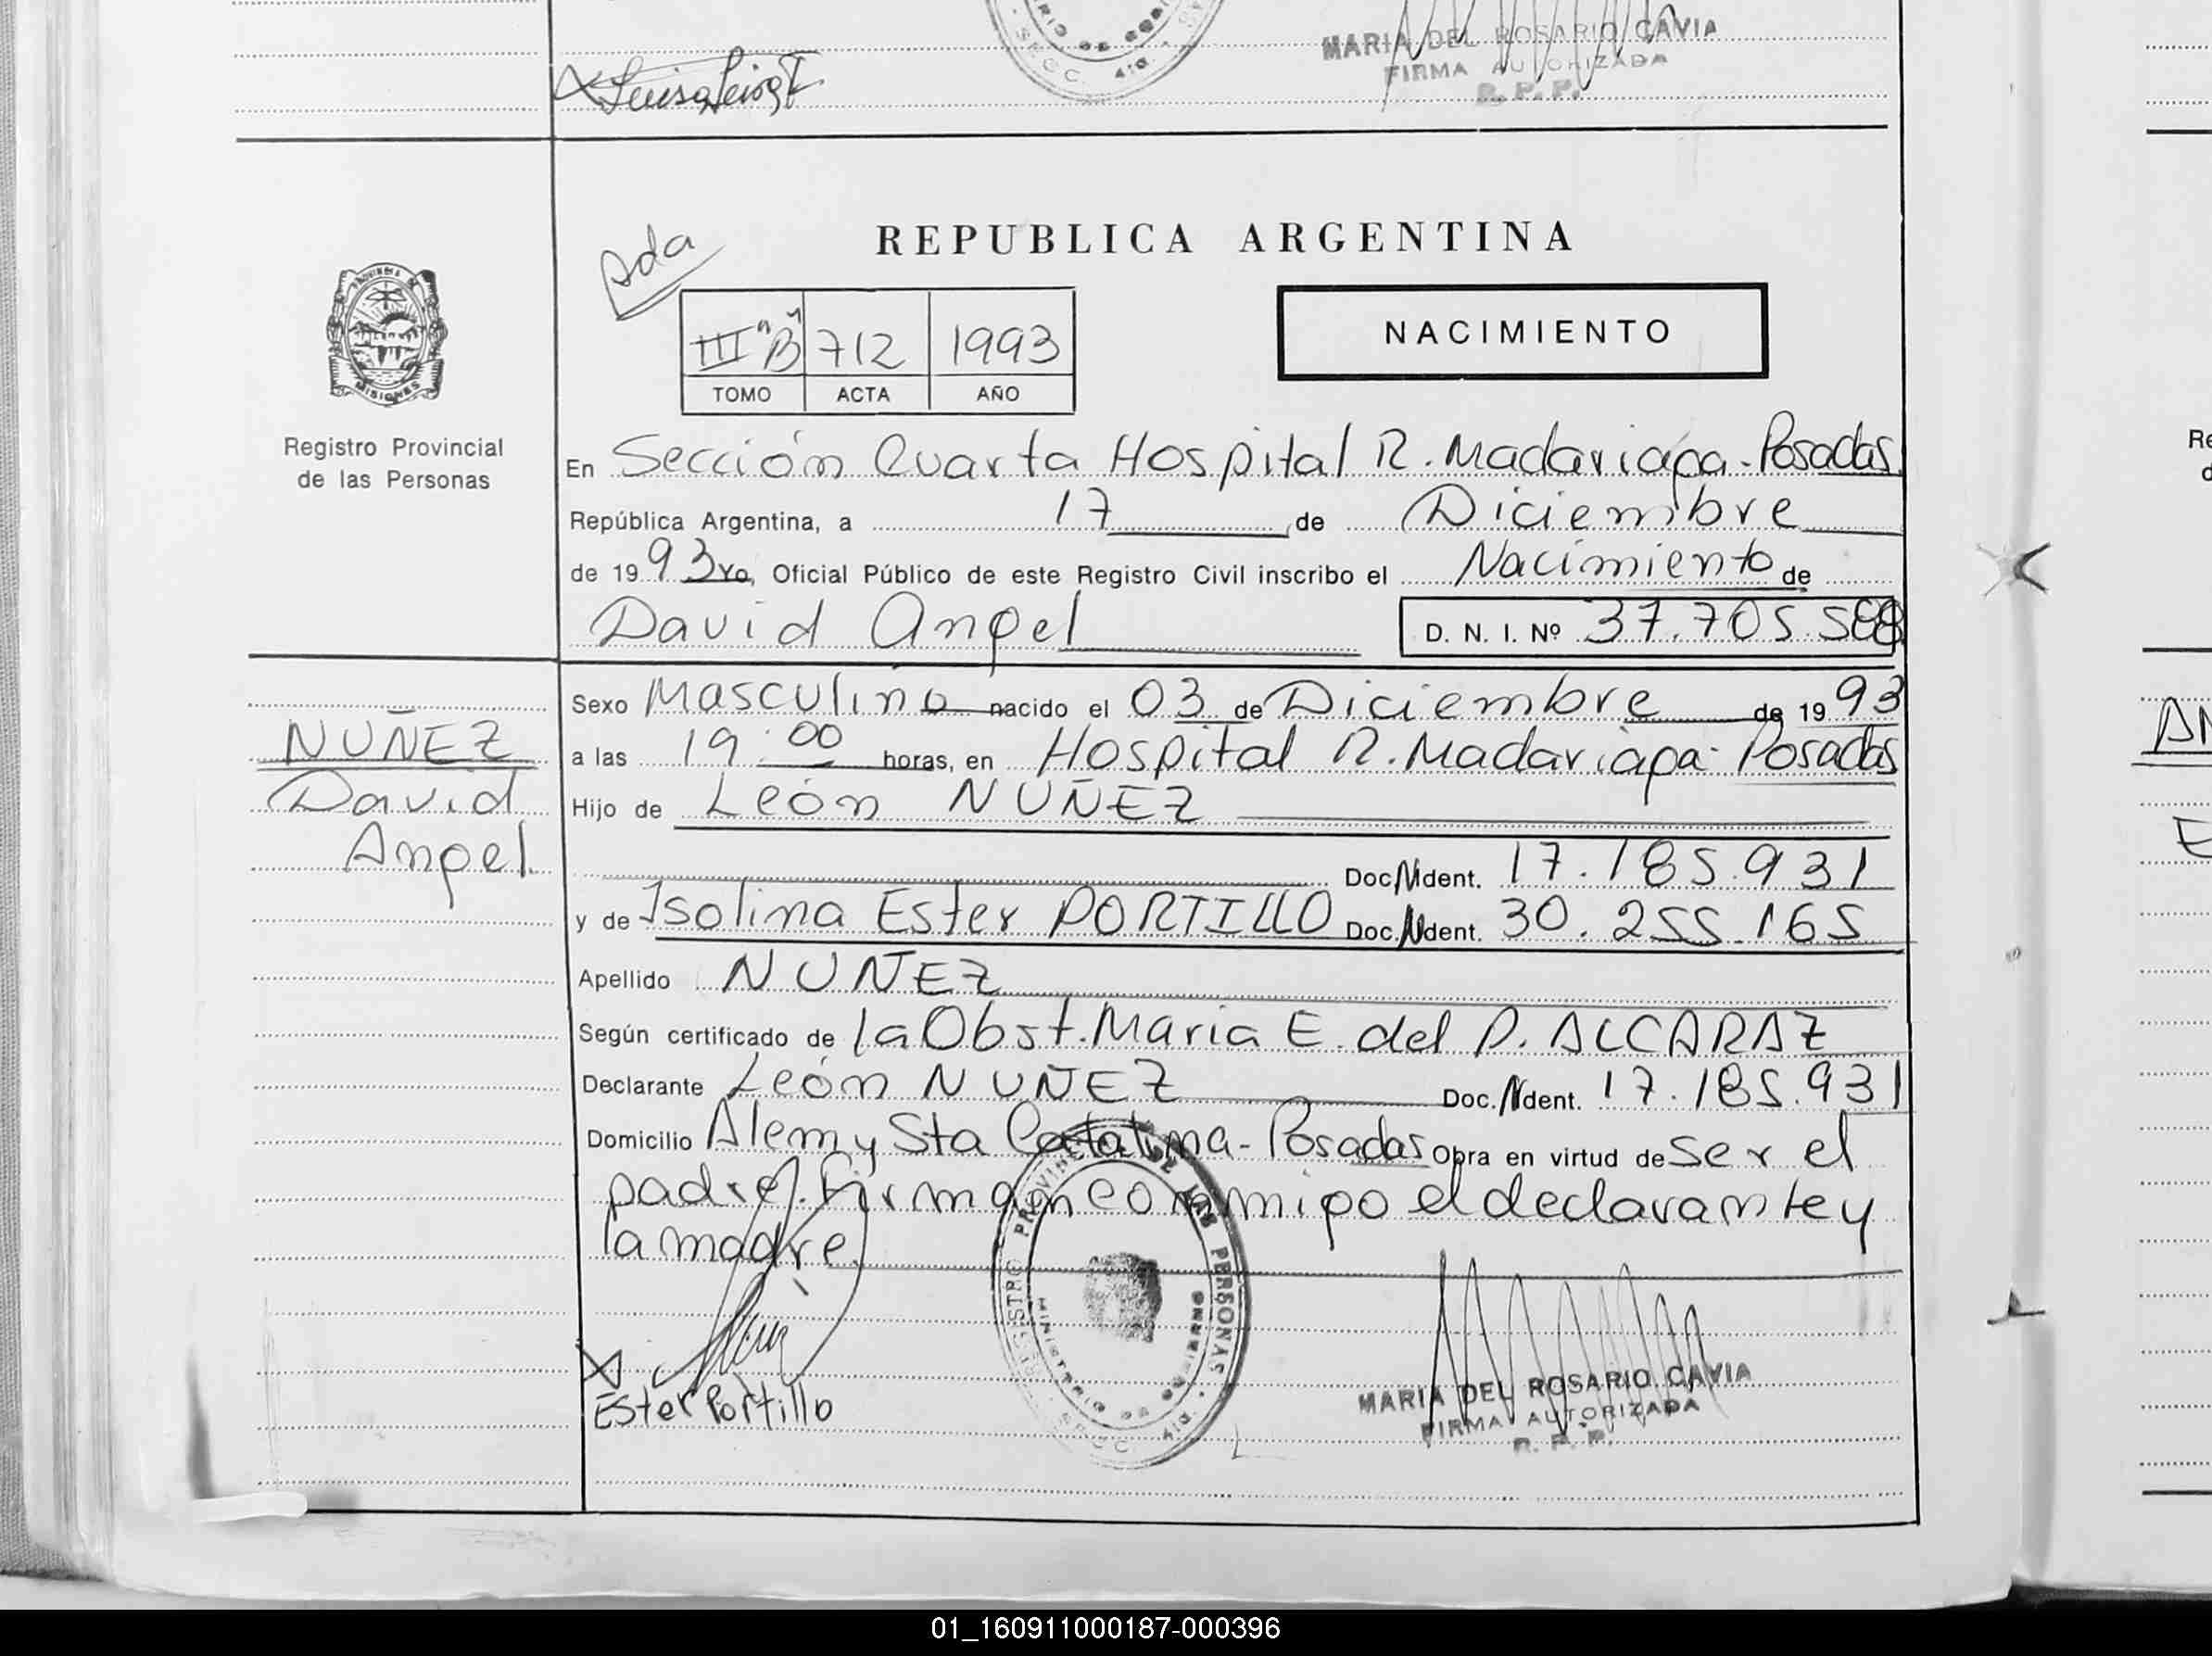 MARIA DEL ROSARIO CAVIA
FIRMA AUTORIZADA
R. P. P.
Ada
REPUBLICA ARGENTINA
III "B" 712 1993
TOMO ACTA AÑO
NACIMIENTO
PROVINCIA DE
MISIONES
Registro Provincial
de las Personas
En Sección Cuarta Hospital R. Madariaga - Posadas
República Argentina, a 17 de Diciembre
de 19 93 Yo, Oficial Público de este Registro Civil inscribo el Nacimiento de
David Angel D. N. I. Nº 37.705.588
Sexo Masculino nacido el 03 de Diciembre de 19 93
NUÑEZ
David
Angel
a las 19:00 horas, en Hospital R. Madariaga - Posadas
Hijo de León NUÑEZ
Doc. Ident. 17.185.931
y de Isolina Ester PORTILLO Doc. Ident. 30.255.165
Apellido NUÑEZ
Según certificado de la Obst. Maria E. del P. ALCARAZ
Declarante León NUÑEZ Doc. Ident. 17.185.931
Domicilio Alem y Sta Catalina - Posadas Obra en virtud de ser el
padre. Firman conmigo el declarante y
la madre.
REGISTRO PROVINCIAL DE LAS PERSONAS
MINISTERIO DE GOBIERNO
Ester Portillo
MARIA DEL ROSARIO CAVIA
FIRMA AUTORIZADA
R. P. P.
01_160911000187-000396